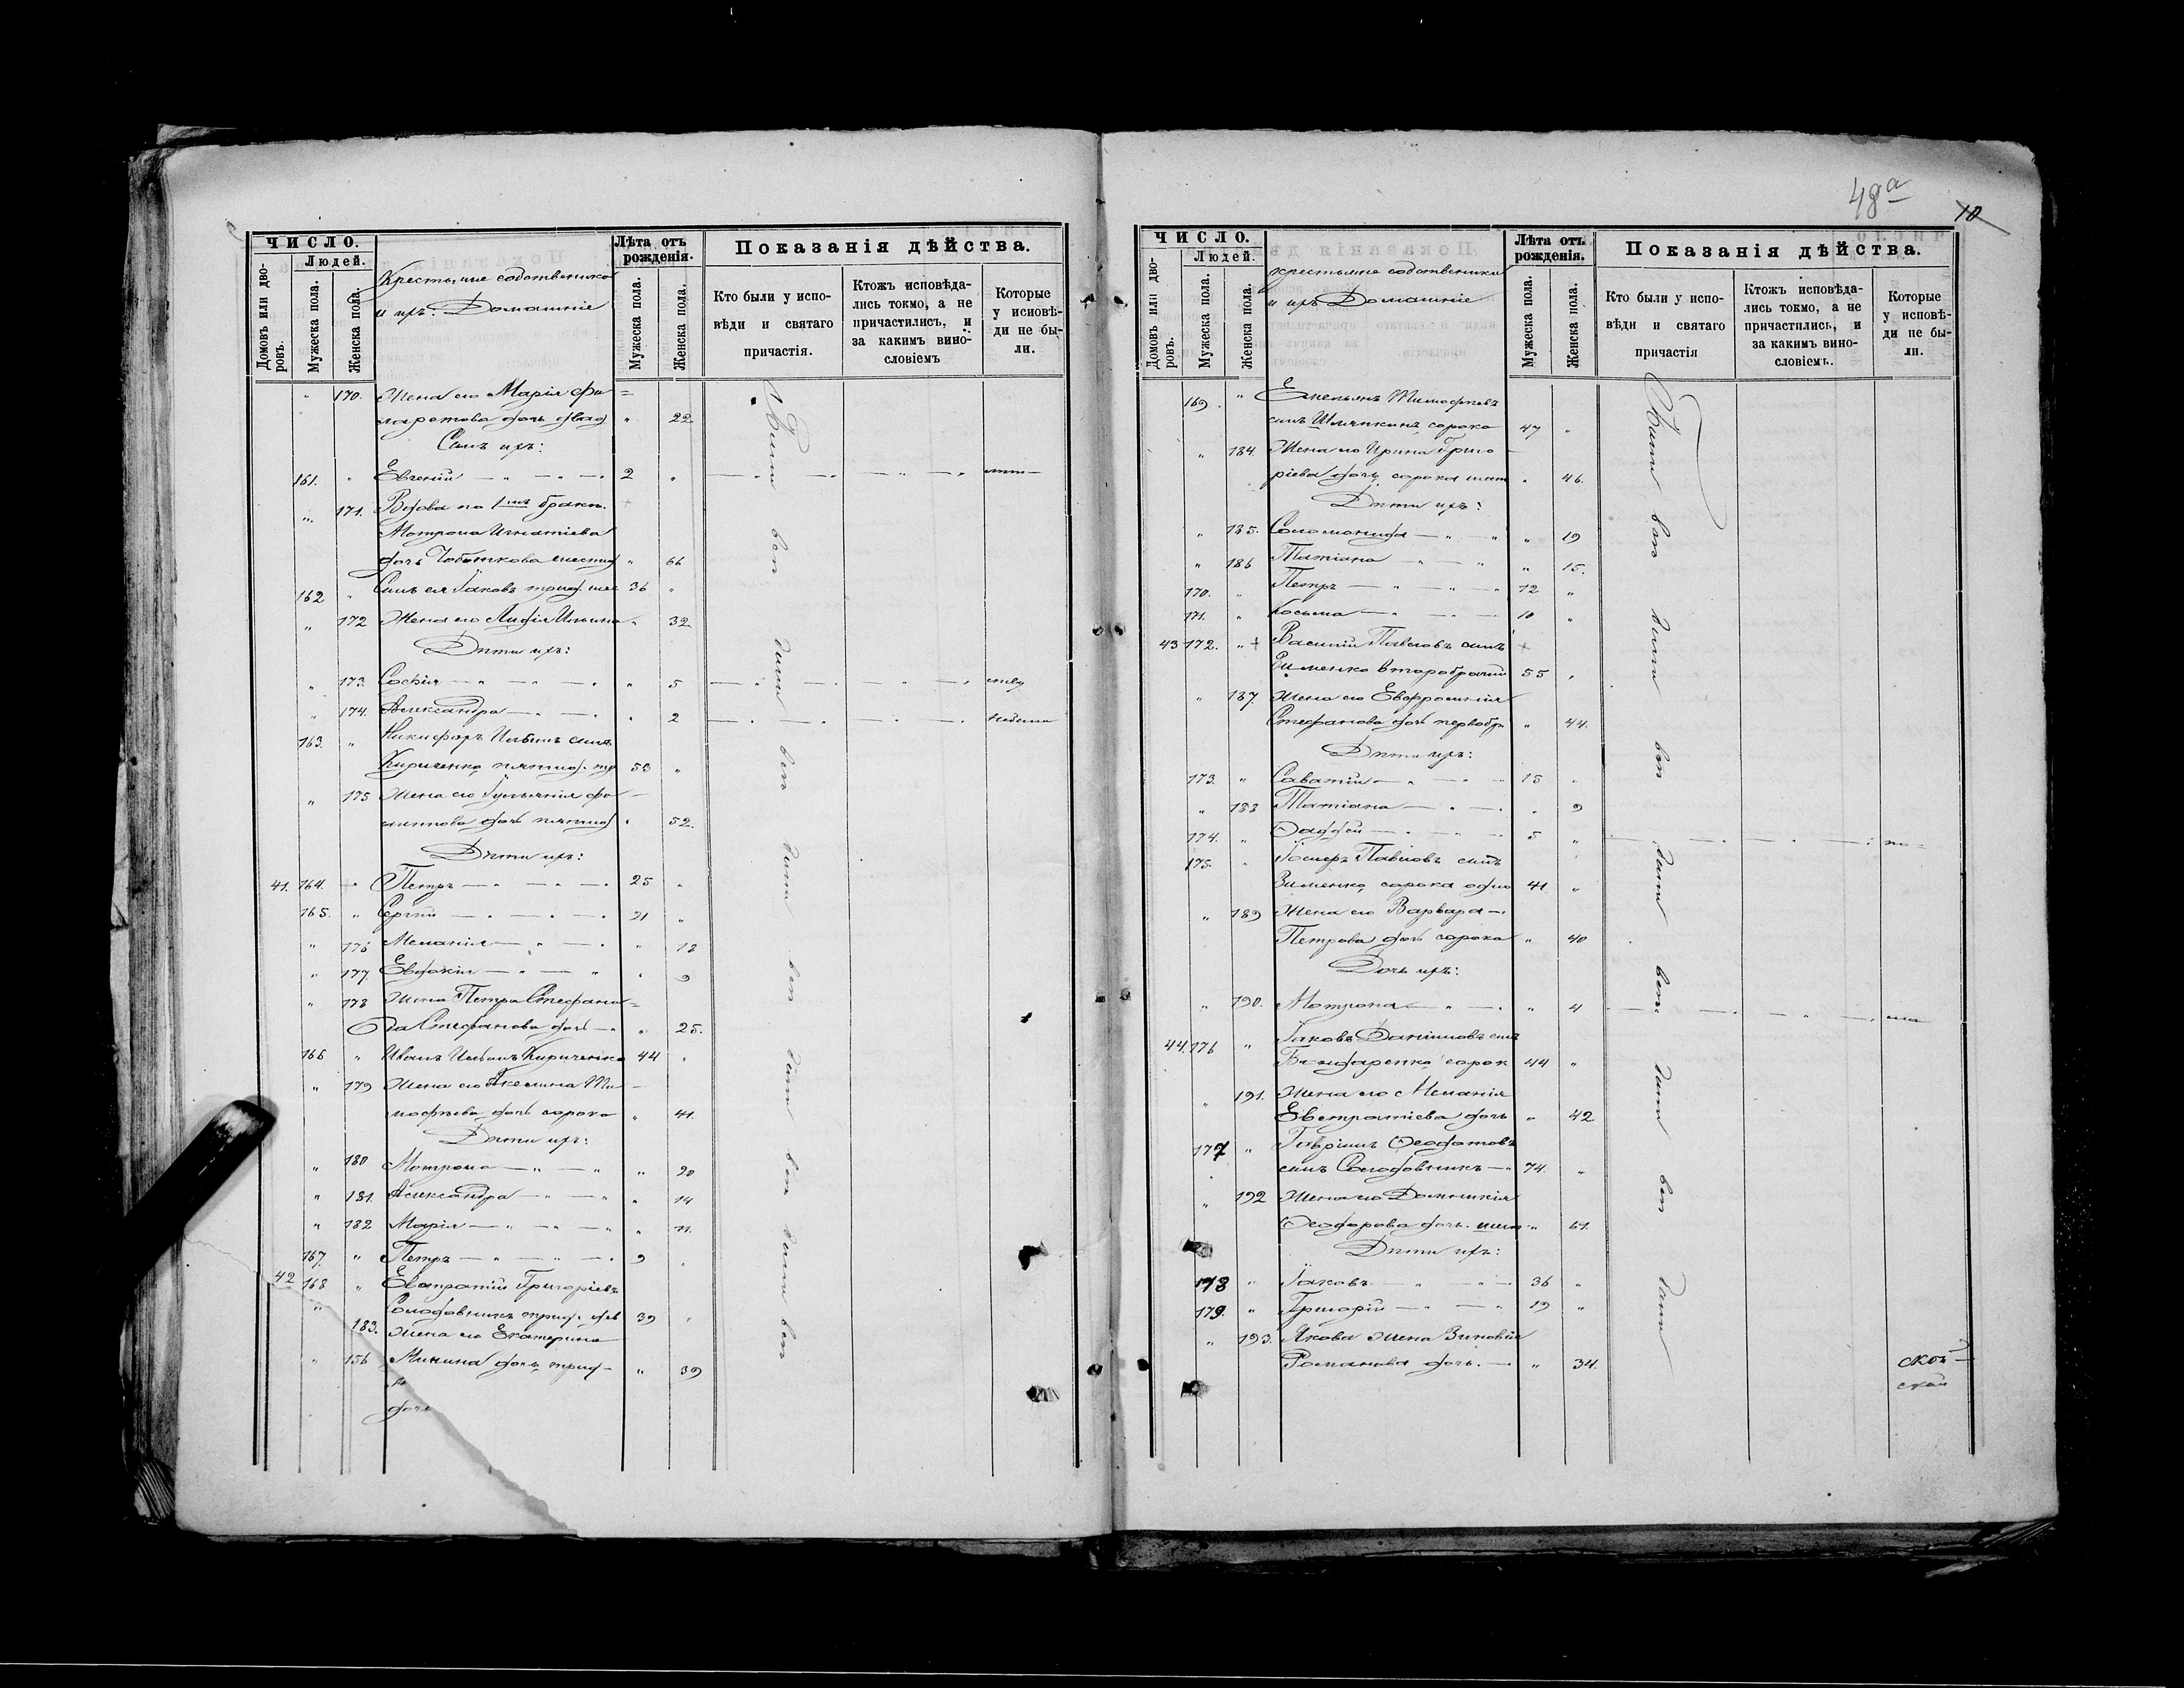 ЧИСЛО.
Людей.
Домовъ или дворовъ.
Мужеска пола.
Женска пола.
Крестьяне собственники
и ихъ Домашніе
Лѣта отъ рожденія.
Мужеска пола.
Женска пола.
Показанія дѣйства.
Кто были у исповѣди и святаго причастія.
Ктожъ исповѣдались токмо, а не причастились, и за какимъ винословіемъ
Которые у исповѣди не были.
" 170. Жена его Марія Фи=
ларетова дочь двад " 22
Сынъ ихъ:
161. " Евгеній — " — " — " 2 "
" 171. Вдова по 1мъ бракѣ.
Мотрона Игнатіева
дочь Чоботкова шестид " 66
162 " Сынъ ея Іаковъ трид. шес 36 "
" 172 Жена его Лидія Ильина " 32
Дѣти ихъ:
" 173. Софія — " — " — " " 5
" 174. Александра — " — " " 2
163. " Никифоръ Ильинъ сынъ
Кириченко, пятид. тр 53 "
" 175 Жена его Іуліанія Фи—
липпова дочь пятид " 52.
Дѣти ихъ:
41. 164. " Петръ — " — " — " 25 "
165. " Сергій — " — " — " 21 "
" 176 Меланія — " — " " 18
" 177. Евдокія — " — " " 9
" 178 Жена Петра Стефани=
да Стефанова дочь — " " 25.
166 " Иванъ Ильинъ Кириченко 44 "
" 179 Жена его Акелина Ти—
мофѣева дочь сорока " 41.
Дѣти ихъ:
" 180 Мотрона — " — " " 20
" 181. Александра — " — " " 14
" 182 Марія — " — " — " " 11.
167. " Петръ — " — " — " 9 "
42 168 " Евстратій Григоріевъ
" Солодовникъ трид. дев 39 "
183. Жена его Екатерина
" 156 Минина дочь, трид— " 39
дочь
Были
48а
10
ЧИСЛО.
Людей.
Домовъ или дворовъ.
Мужеска пола.
Женска пола.
крестьяне собственники
и ихъ Домашніе
Лѣта отъ рожденія.
Мужеска пола.
Женска пола.
Показанія дѣйства.
Кто были у исповѣди и святаго причастія
Ктожъ исповѣдались токмо, а не причастились, и за какимъ винословіемъ.
Которые у исповѣди не были.
169. " Емельянъ Тимофѣевъ
сынъ Шляпкинъ, сорока 47 "
" 184. Жена его Ирина Григо—
ріева дочь сорока шест " 46.
Дѣти ихъ:
" 185. Соломонида — " — " " 19
" 186 Татіана — " — " " 15.
170. " Петръ — " — " — " 12 "
171. " Косьма — " — " — " 10 "
43 172. " + Василій Павловъ сынъ
Зименко второбрачный 55 "
" 187. Жена его Евфросинія
Стефанова дочь первобр " 44.
Дѣти ихъ:
173. " Саватій — " — " — " 15 "
" 188 Татіана — " — " " 9
174. " Фаддей — " — " — " 5 "
175. " Іосифъ Павловъ сынъ
Зименко, сорока одно 41 "
" 189 Жена его Варвара —
Петрова дочь сорока " 40
Дочь ихъ:
" 190. Мотрона — " — " " 4
44. 176 " Іаковъ Даніиловъ сынъ
Бондаренко, сорок 44 "
" 191. Жена его Меланія
Евстратіева дочь " 42
177 " Гавріилъ Феодотовъ
сынъ Солодовникъ — " 74. "
" 192 Жена его Домникія
Феодорова дочь. шест " 61.
Дѣти ихъ:
178 " Іаковъ — " — " — " 36 "
179. " Григорій — " — " 19 "
" 193. Якова жена Зиновія
Романова дочь. — " " 34.
Были